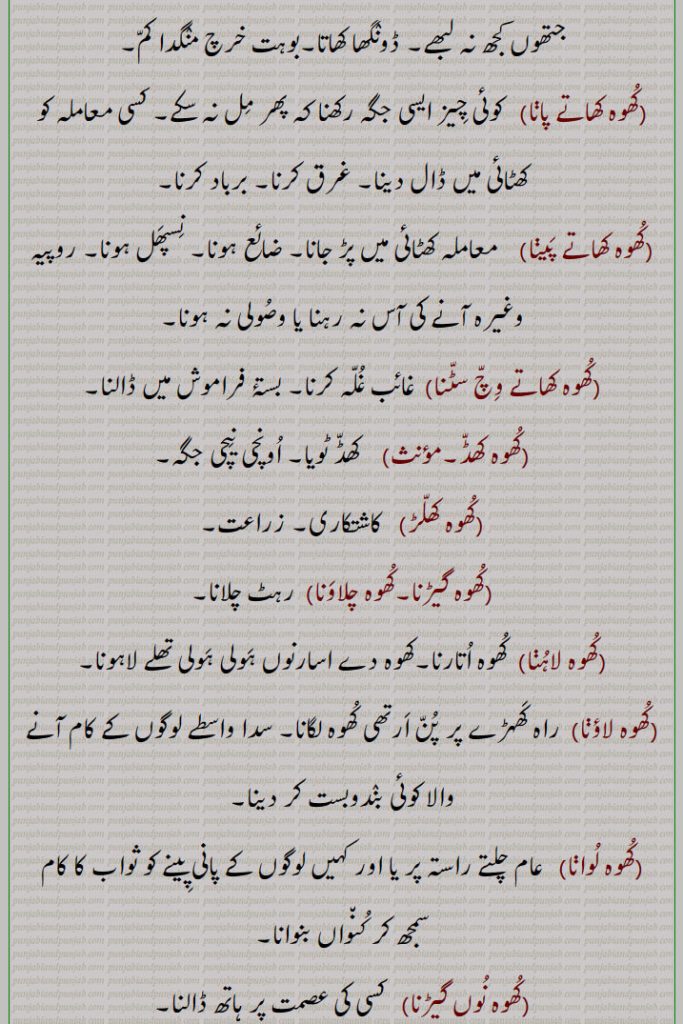 جتھوں کجھ نہ لبھے۔ ڈونگھا کھاتا۔ بوہت خرچ منگدا کمّ۔
(کُھوہ کھاتے پاݨا) کوئی چِیز ایسی جگہ رکھنا کہ پھر مِل نہ سکے۔ کسی معاملہ کو
کھٹائی میں ڈال دینا۔ غرق کرنا۔ برباد کرنا۔
(کُھوہ کھاتے پَیݨا) معاملہ کھٹائی میں پڑ جانا۔ ضائع ہونا۔ نِسپھَل ہونا۔ روپیہ
وغیرہ آنے کی آس نہ رہنا یا وصُولی نہ ہونا۔
(کُھوہ کھاتے وِچّ سٹّنا) غائب غُلّہ کرنا۔ بستۂ فراموش میں ڈالنا۔
(کُھوہ کھڈّ۔ مؤنث) کھڈّ ٹویا۔ اُونچی نِیچی جگہ۔
(کُھوہ کھلّڑ) کاشتکاری۔ زراعت۔
(کُھوہ گیڑنا۔ کُھوہ چلاوَنا) رہٹ چلانا۔
(کُھوہ لاہُݨا) کُھوہ اُتارنا۔ کھوہ دے اسارنوں ہَولی ہَولی تھلے لاہونا۔
(کُھوہ لاؤݨا) راہ کَھہڑے پر پُنّ اَرتھی کُھوہ لگانا۔ سدا واسطے لوگوں کے کام آنے
والا کوئی بندوبست کر دینا۔
(کُھوہ لُواݨا) عام چلتے راستہ پر یا اور کہیں لوگوں کے پانی پِینے کو ثواب کا کام
سمجھ کر کُنّواں بنوانا۔
(کُھوہ نُوں گیڑنا) کسی کی عصمت پر ہاتھ ڈالنا۔